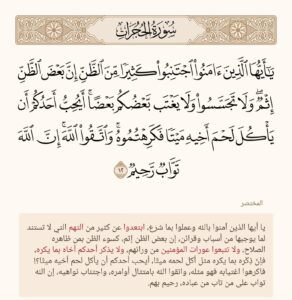 سُورَةُ الحُجُرَاتِ
يَٰٓأَيُّهَا ٱلَّذِينَ ءَامَنُوا۟ ٱجْتَنِبُوا۟ كَثِيرًا مِّنَ ٱلظَّنِّ إِنَّ بَعْضَ ٱلظَّنِّ
إِثْمٌ ۖ وَلَا تَجَسَّسُوا۟ وَلَا يَغْتَب بَّعْضُكُم بَعْضًا ۚ أَيُحِبُّ أَحَدُكُمْ أَن
يَأْكُلَ لَحْمَ أَخِيهِ مَيْتًا فَكَرِهْتُمُوهُ ۚ وَٱتَّقُوا۟ ٱللَّهَ ۚ إِنَّ ٱللَّهَ
تَوَّابٌ رَّحِيمٌ ١٢
المختصر
يا أيها الذين آمنوا بالله وعملوا بما شرع، ابتعدوا عن كثير من التهم التي لا تستند
لما يوجبها من أسباب وقرائن، إن بعض الظن إثم، كسوء الظن بمن ظاهره
الصلاح، ولا تتبعوا عورات المؤمنين من ورائهم، ولا يذكر أحدكم أخاه بما يكره،
فإن ذِكره بما يكره مثل أكل لحمه ميتًا، أيحب أحدكم أن يأكل لحم أخيه ميتًا؟!
فاكرهوا اغتيابه فهو مثله، واتقوا الله بامتثال أوامره، واجتناب نواهيه، إن الله
تواب على من تاب من عباده، رحيم بهم.